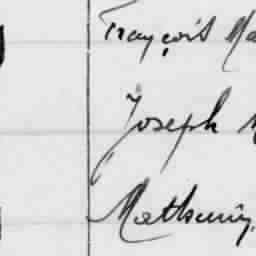 François Ma
Joseph M
Mathurin